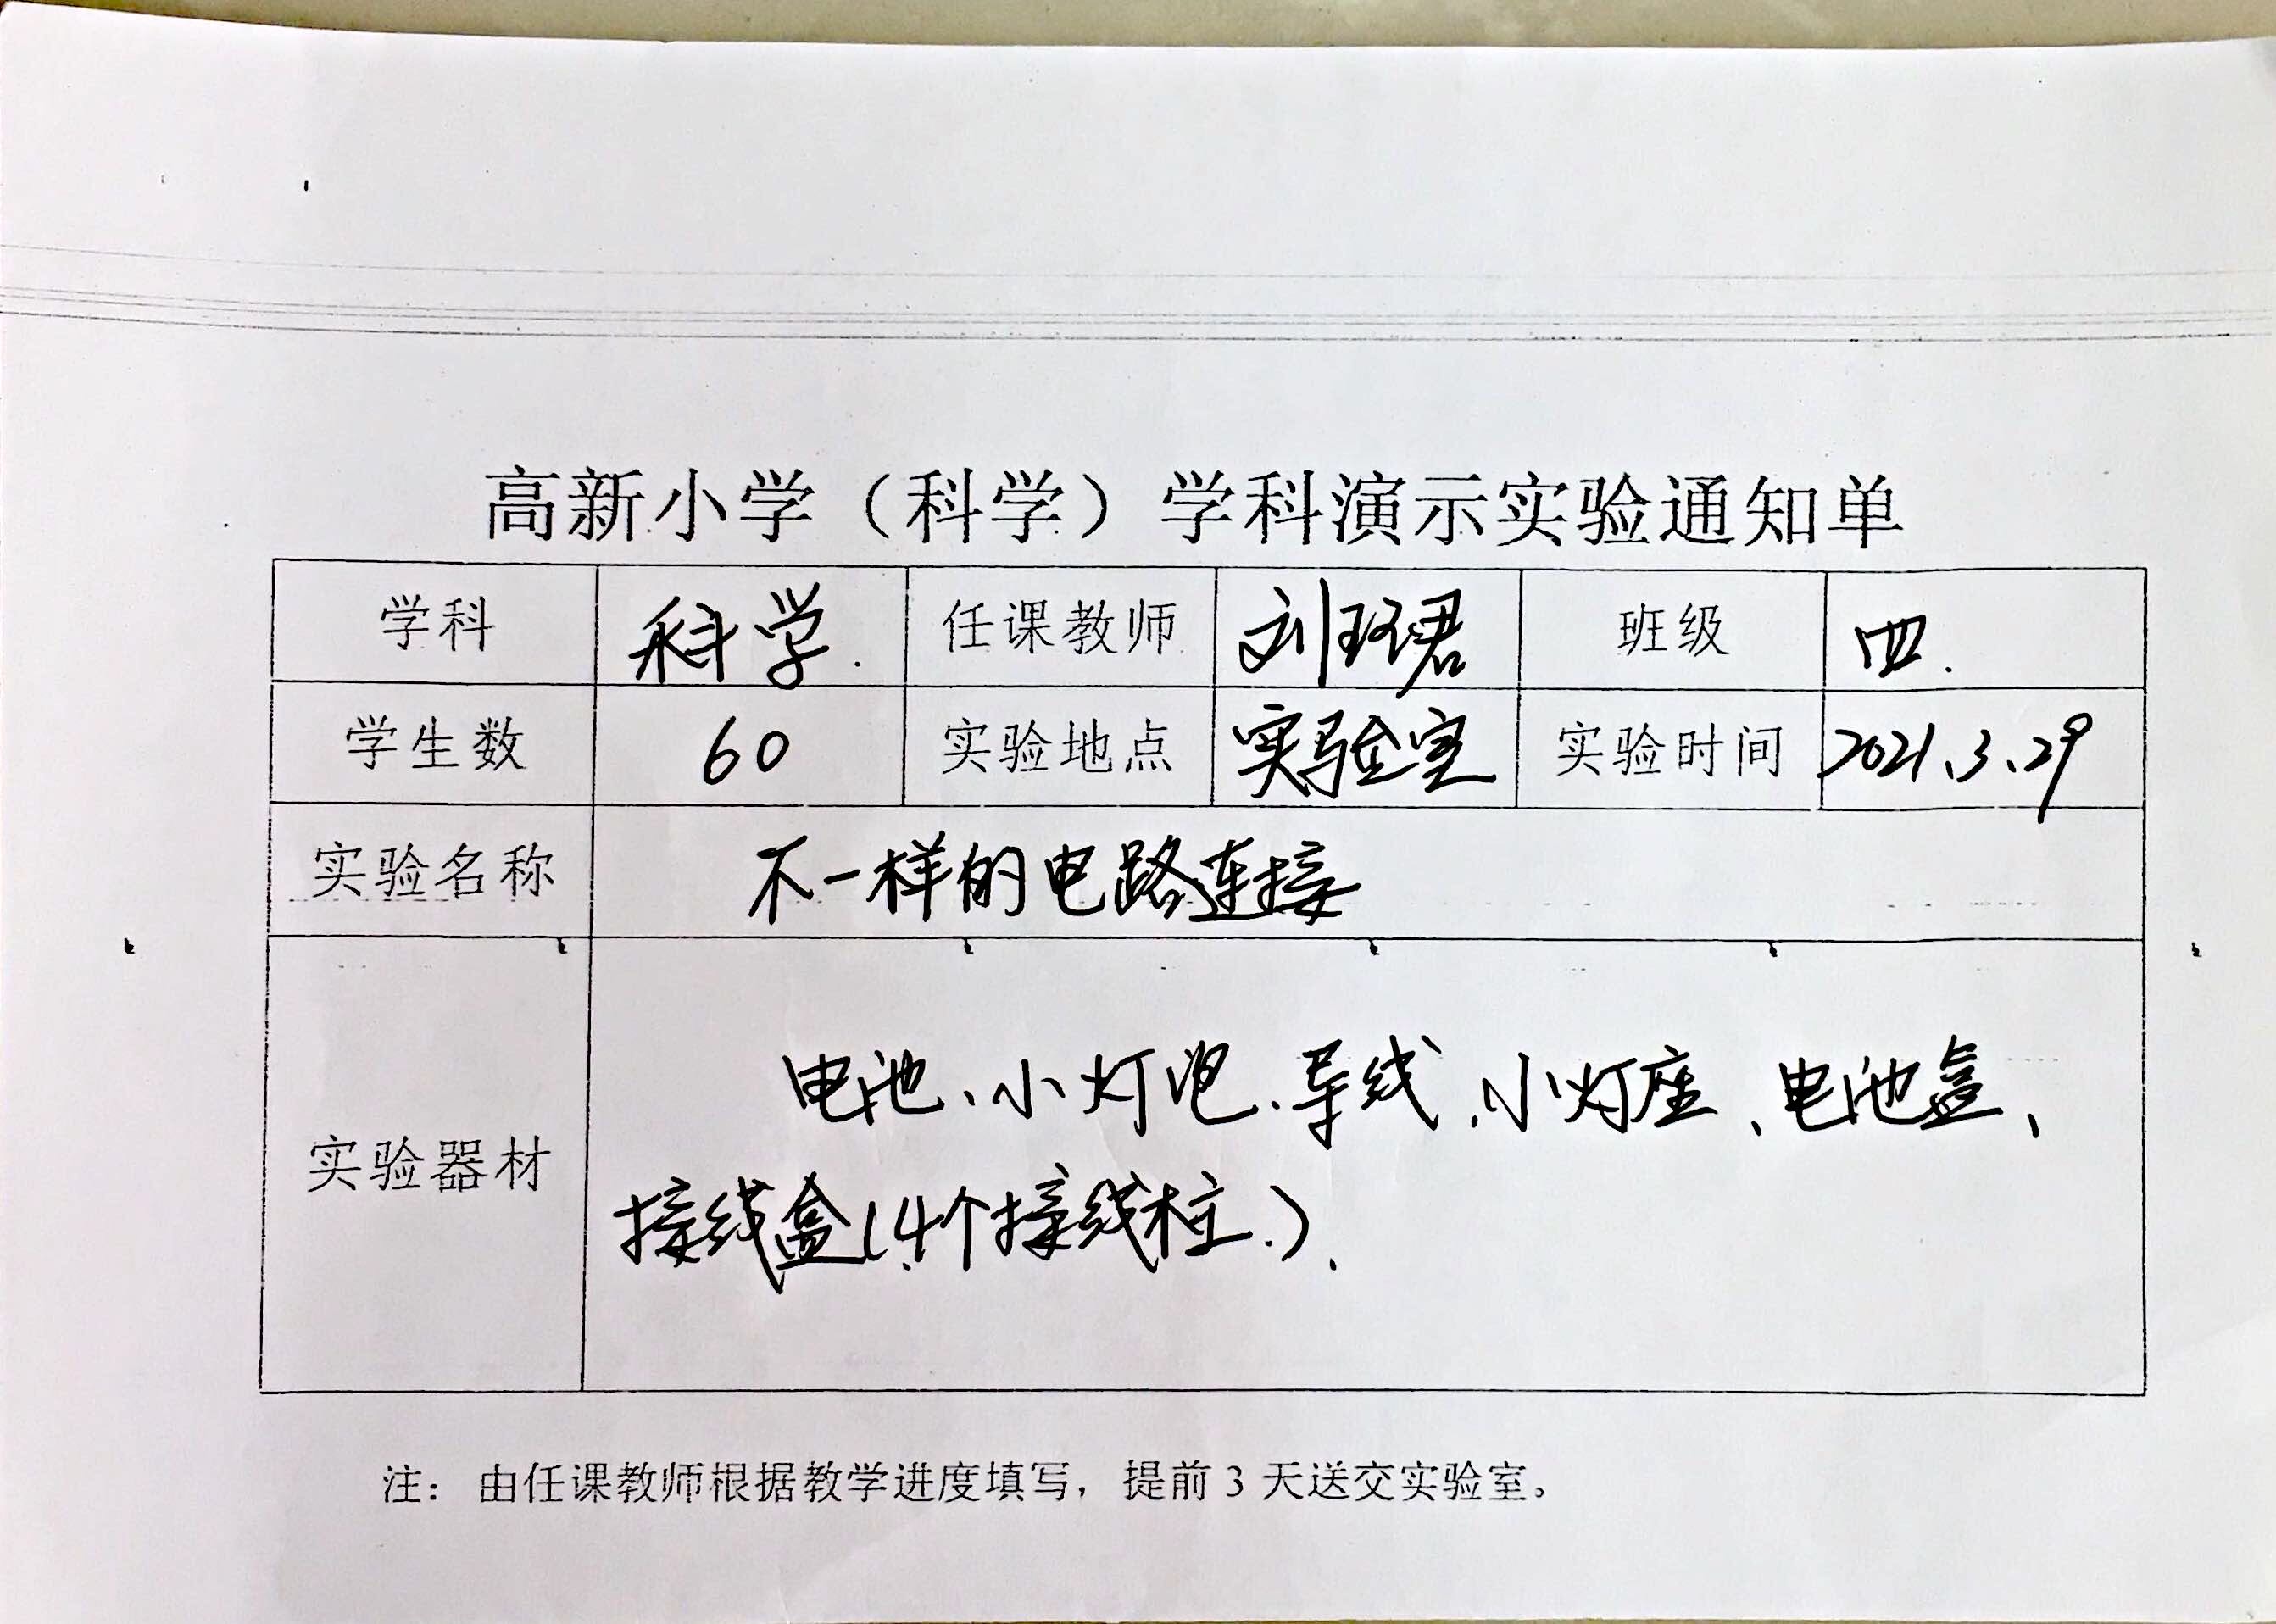 高新小学（科学）学科演示实验通知单
学科 科学. 任课教师 刘环君 班级 四.
学生数 60 实验地点 实验室 实验时间 2021、3、29
实验名称 不一样的电路连接
电池、小灯泡、导线、小灯座、电池盒、
实验器材
接线盒(4个接线柱.)、
注：由任课教师根据教学进度填写，提前3天送交实验室。